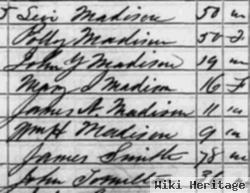 Levi Madison 50 m
Polly Madison 50 F
John Y Madison 19 m
Mary J Madison 16 F
James A Madison 11 m
Wm H Madison 9 m
James Smith 78 m
John
Hiki Heritage